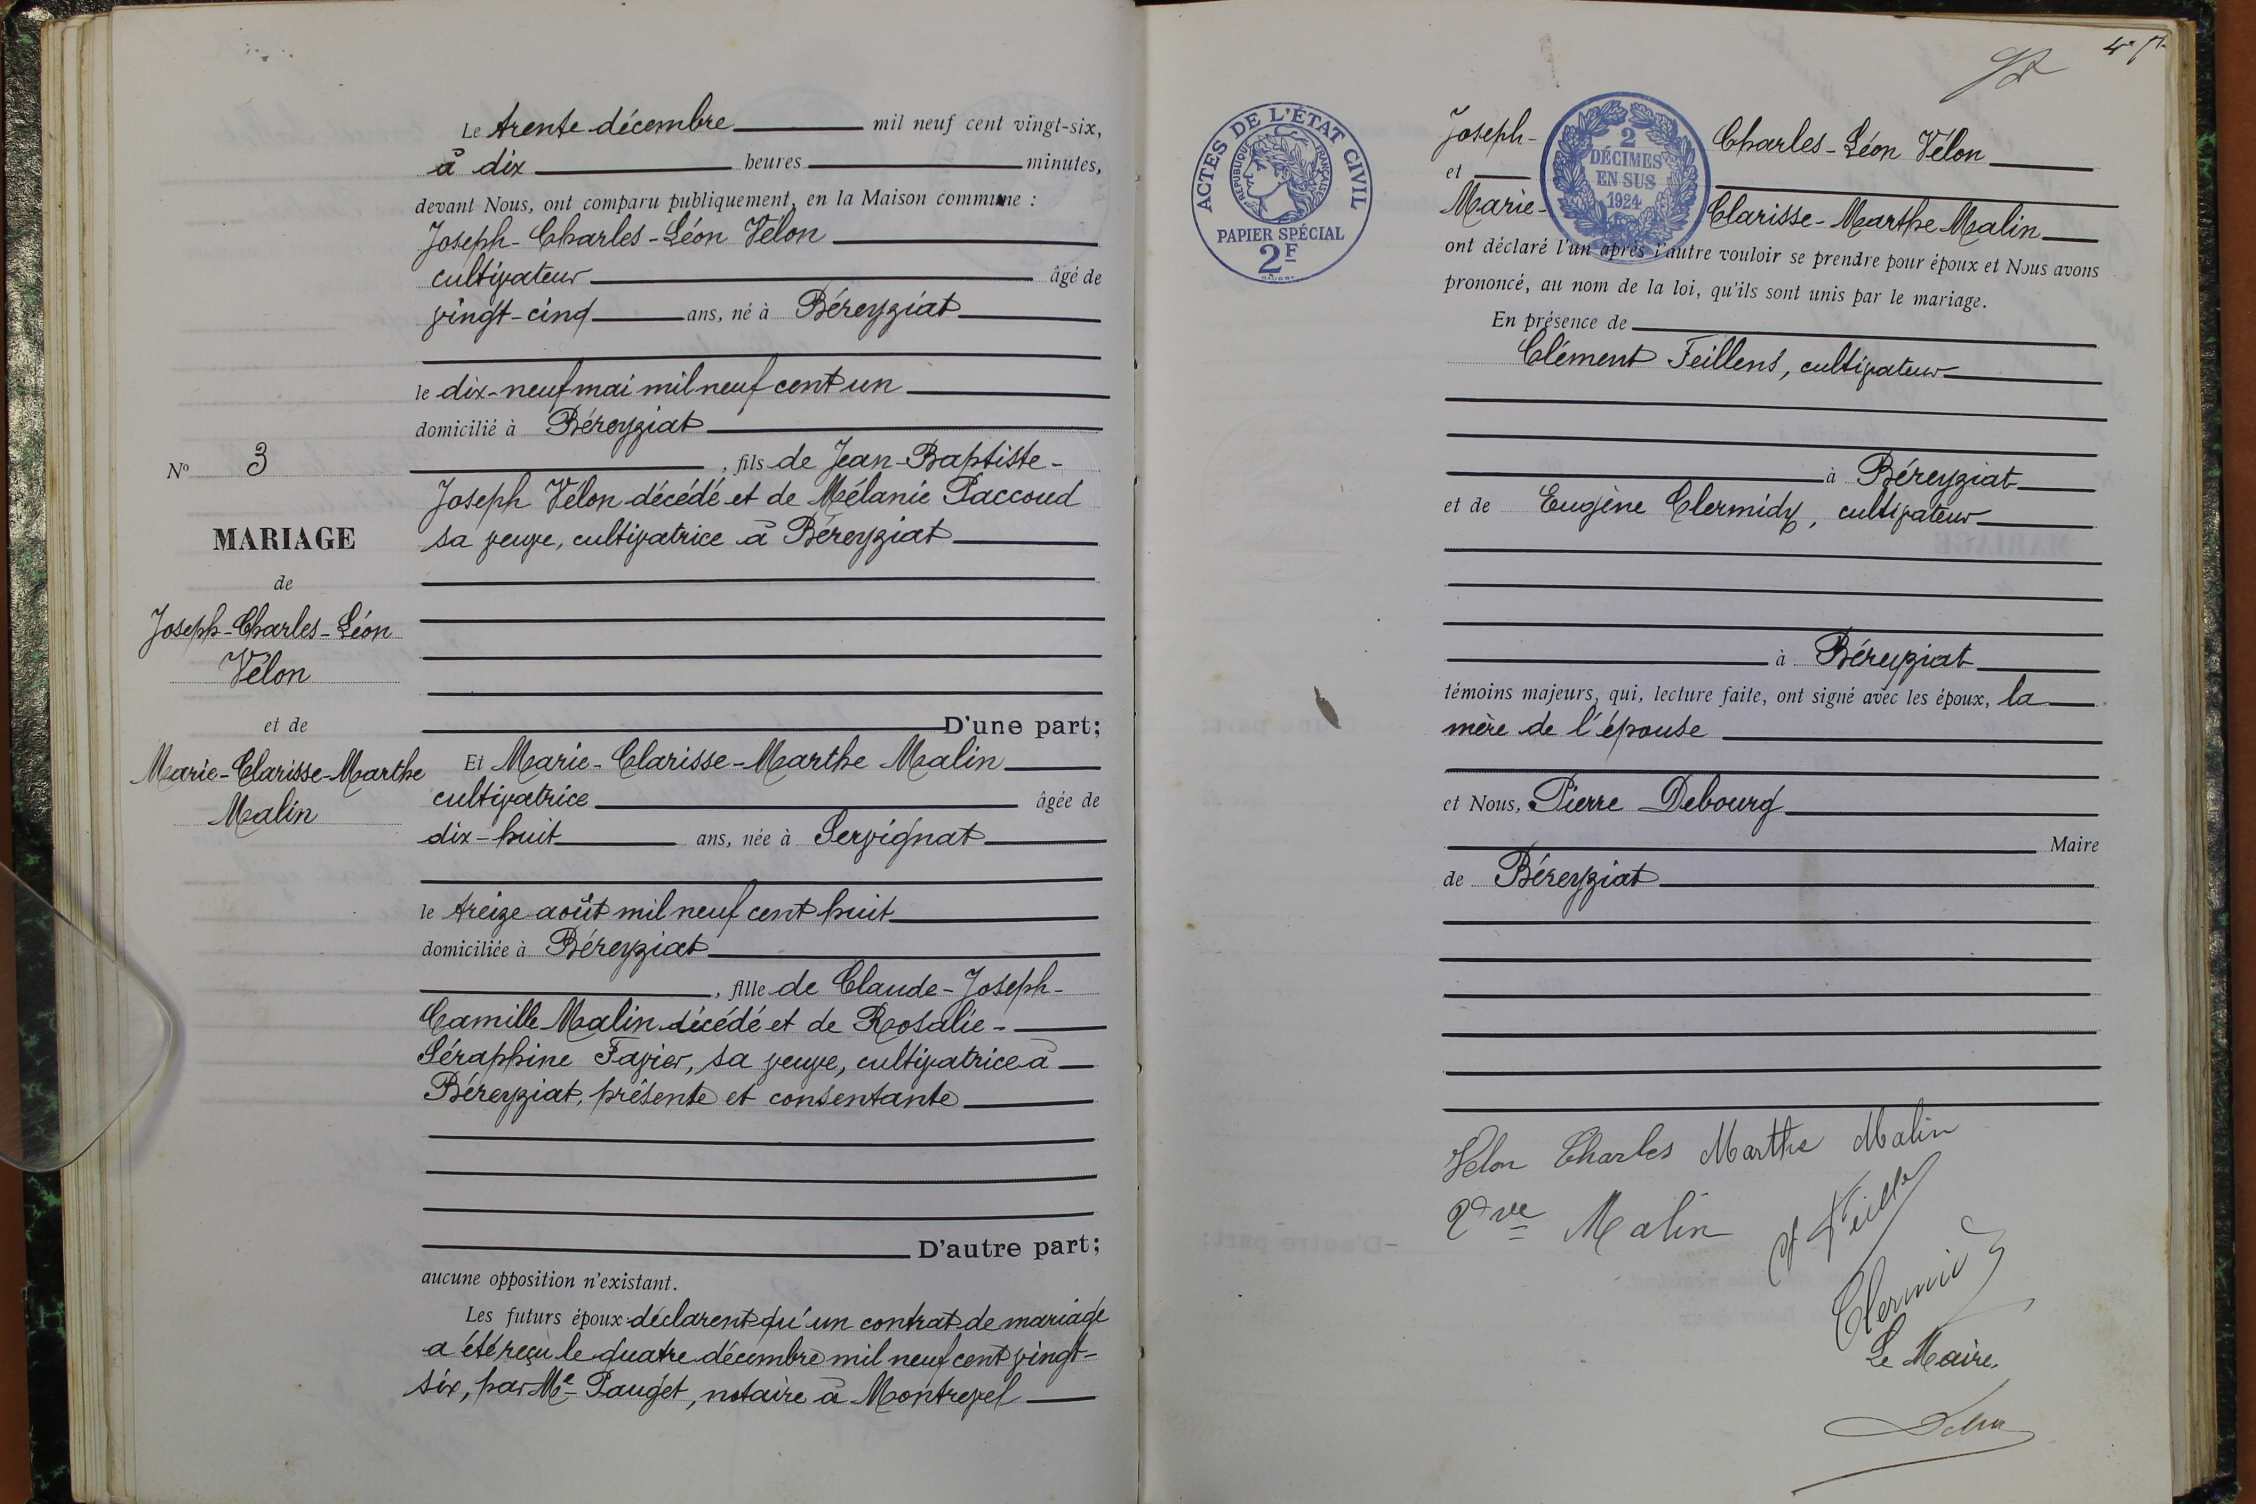 Le trente décembre mil neuf cent vingt-six,
à dix heures minutes,
devant Nous, ont comparu publiquement, en la Maison commune :
Joseph-Charles-Léon Vélon
cultivateur âgé de
vingt-cinq ans, né à Béreyziat
le dix-neuf mai mil neuf cent un
domicilié à Béreyziat
, fils de Jean-Baptiste-
Joseph Vélon décédé et de Mélanie Paccoud
sa veuve, cultivatrice à Béreyziat
D'une part;
Et Marie-Clarisse-Marthe Malin
cultivatrice âgée de
dix-huit ans, née à Servignat
le treize août mil neuf cent huit
domiciliée à Béreyziat
, fille de Claude-Joseph-
Camille Malin décédé et de Rosalie-
Séraphine Favier, sa veuve, cultivatrice à
Béreyziat, présente et consentante
D'autre part;
aucune opposition n'existant.
Les futurs époux déclarent qu'un contrat de mariage
a été reçu le quatre décembre mil neuf cent vingt-
six, par Me Pauget, notaire à Montrevel
No 3
MARIAGE
de
Joseph-Charles-Léon
Vélon
et de
Marie-Clarisse-Marthe
Malin
ACTES DE L'ÉTAT CIVIL
RÉPUBLIQUE FRANÇAISE
PAPIER SPÉCIAL
2F
2
DÉCIMES
EN SUS
1924
Joseph- Charles-Léon Vélon
et
Marie- Clarisse-Marthe Malin
ont déclaré l'un après l'autre vouloir se prendre pour époux et Nous avons
prononcé, au nom de la loi, qu'ils sont unis par le mariage.
En présence de
Clément Feillens, cultivateur
à Béreyziat
et de Eugène Clermidy, cultivateur
à Béreyziat
témoins majeurs, qui, lecture faite, ont signé avec les époux, la
mère de l'épouse
et Nous, Pierre Debourg
Maire
de Béreyziat
Velon Charles Marthe Malin
ve Malin
Le Maire.